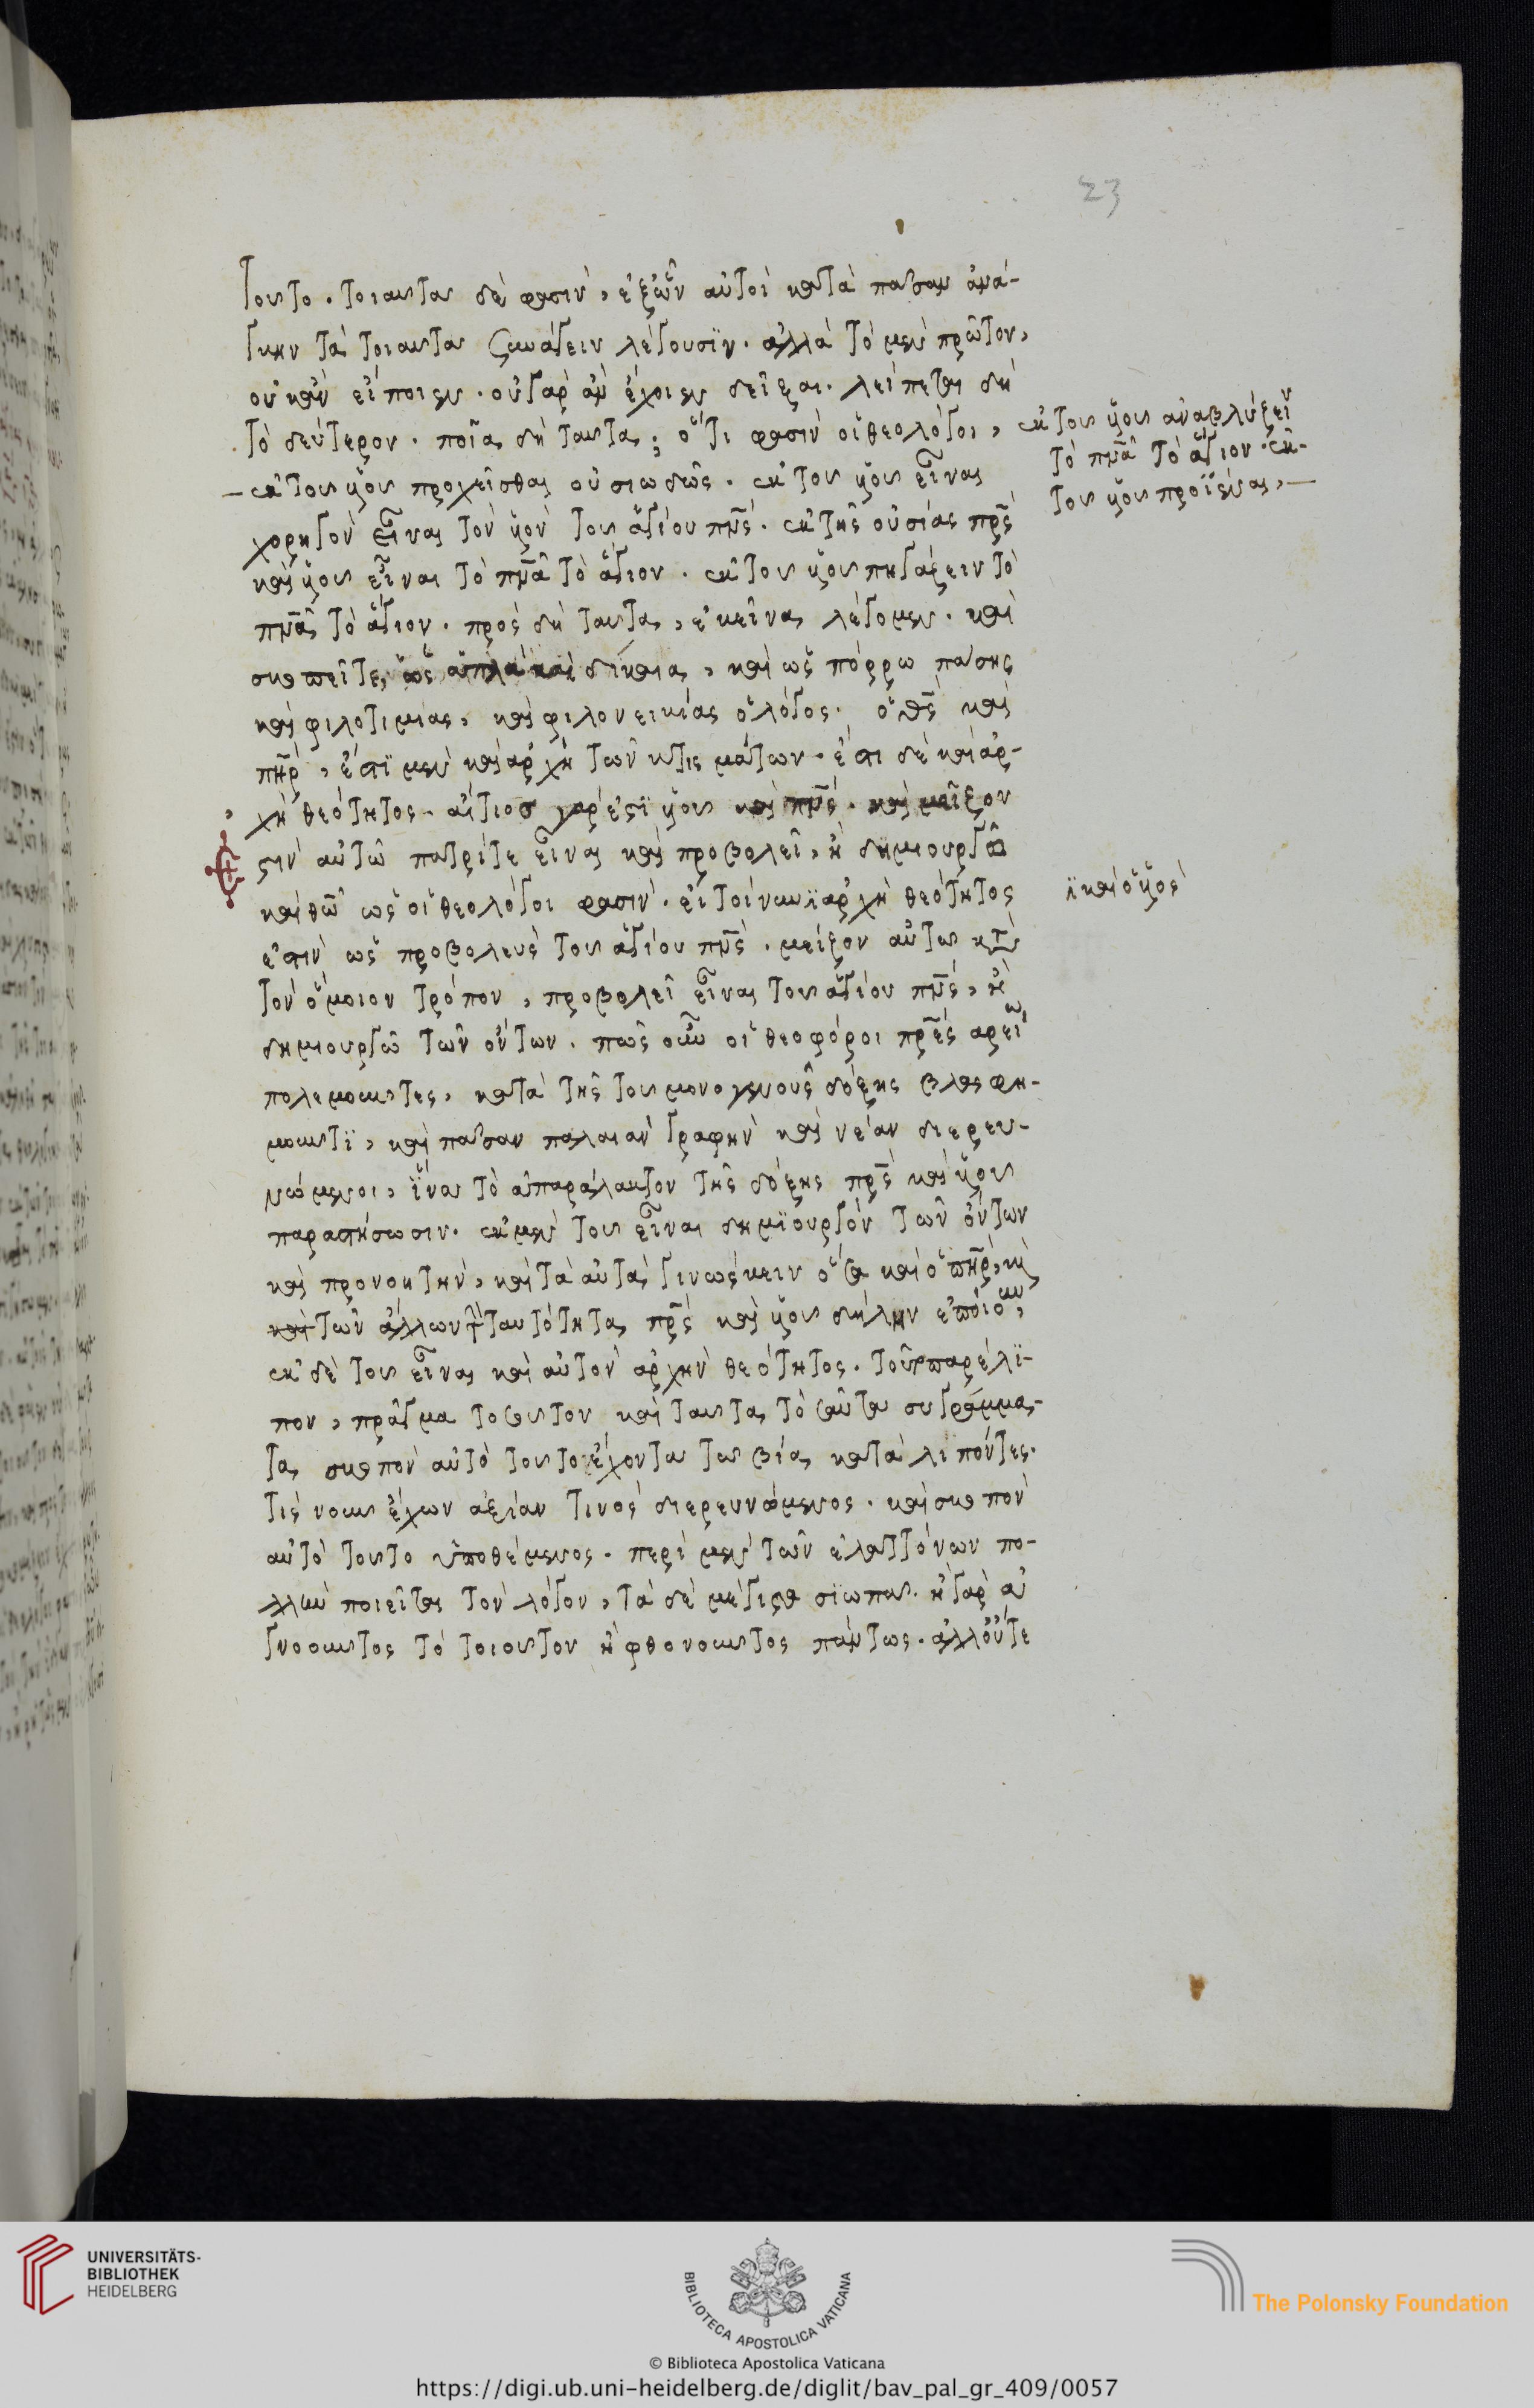 23
τοῦτο. τοιαῦτα δέ φασιν, ἐξ ὧν αὐτοὶ κατὰ πᾶσαν ἀνά-
γκην τὰ τοιαῦτα συνάγειν λέγουσϊν. ἀλλὰ τὸ μὲν πρῶτον,
οὐκ ἂν εἴποιεν. οὐ γὰρ ἂν ἔχοιεν δεῖξαι. λείπεται δὴ
τὸ δεύτερον. ποῖα δὴ ταῦτα; ὅτι φασὶν οἱ θεολόγοι,
ἐκ τοῦ υἱοῦ προχεῖσθαι οὐσιωδῶς. ἐκ τοῦ υἱοῦ εἶναι
χορηγὸν εἶναι τὸν υἱὸν τοῦ ἁγίου πν̅ς. ἐκ τῆς οὐσίας πρ̅ς
καὶ υἱοῦ εἶναι τὸ πν̅α τὸ ἅγιον. ἐκ τοῦ υἱοῦ πηγάζειν τὸ
πν̅α τὸ ἅγιον. πρὸς δὴ ταῦτα, ἐκεῖνα λέγομεν. καὶ
σκοπεῖτε, ὡς ἁπλᾶ καὶ δίκαια, καὶ ὡς πόρρω πάσης
καὶ φιλοτιμίας, καὶ φιλονεικίας ὁ λόγος. ὁ θς̅ καὶ
πη̅ρ, ἔστϊ μὲν καὶ ἀρχὴ τῶν κτισμάτων. ἔστι δὲ καὶ ἀρ-
χὴ θεότητος. αἴτιος γάρ ἐστϊ υἱοῦ καὶ πν̅ς. καὶ μεῖζον
ἐστὶν αὐτῶ πατρί τε εἶναι καὶ προβολεῖ, ἢ δημιουργῶ
καὶ θω̅ ὡς οἱ θεολόγοι φασίν. εἰ τοίνυν ἀρχὴ θεότητος
ἐστὶν ὡς προβολεὺς τοῦ ἁγίου πν̅ς. μεῖζον αὐτῶ κατὰ
τὸν ὅμοιον τρόπον, προβολεῖ εἶναι τοῦ ἁγίου πν̅ς, ἢ
δημιουργῶ τῶν ὄντων. πῶς οὖν οἱ θεοφόροι πρ̅ες ἀρείω
πολεμοῦντες, κατὰ τῆς τοῦ μονογενοῦς δόξης βλασφη-
μοῦντϊ, καὶ πᾶσαν παλαιὰν γραφὴν καὶ νέαν διερευ-
νώμενοι, ἵνα τὸ ἀπαράλακτον τῆς δόξης πρ̅ς καὶ υἱοῦ
παραστήσωσιν. ἐκ μὲν τοῦ εἶναι δημϊουργὸν τῶν ὄντων
καὶ προνοητήν, καὶ τὰ αὐτὰ γινώσκειν ὅσα καὶ ὁ πη̅ρ, καὶ
καὶ τῶν ἄλλων τ̀ ταυτότητα πρ̅ς καὶ υἱοῦ δήλην ἐποίουν,
ἐκ δὲ τοῦ εἶναι καὶ αὐτὸν ἀρχὴν θεότητος. τοῦ παρέλϊ-
πον, πρᾶγμα τοσοῦτον καὶ ταῦτα τοσαῦτα συγράμμα-
τα σκοπὸν αὐτὸ τοῦτο ἔχοντα τῶ βίω καταλιπόντες.
τίς νοῦν ἔχων ἀξίαν τινὸς διερευνώμενος. καὶ σκοπὸν
αὐτὸ τοῦτο ὑποθέμενος. περὶ μὲν τῶν ἐλαττόνων πο-
λλὺν ποιεῖται τὸν λόγον, τὰ δὲ μέγιστα σϊωπᾶ. ἢ γὰρ ἀ
γνοοῦντος τὸ τοιοῦτον ἢ φθονοῦντος πάντως. ἀλλ' οὔτε
ἐκ τοῦ υἱοῦ ἀναβλύζειν
τὸ πν̅α τὸ ἅγιον. ἐκ
τοῦ υἱοῦ προϊέναι,
καὶ ὁ υἱὸς
UNIVERSITÄTS-
BIBLIOTHEK
HEIDELBERG
BIBLIOTECA APOSTOLICA VATICANA
The Polonsky Foundation
© Biblioteca Apostolica Vaticana
https://digi.ub.uni-heidelberg.de/diglit/bav_pal_gr_409/0057